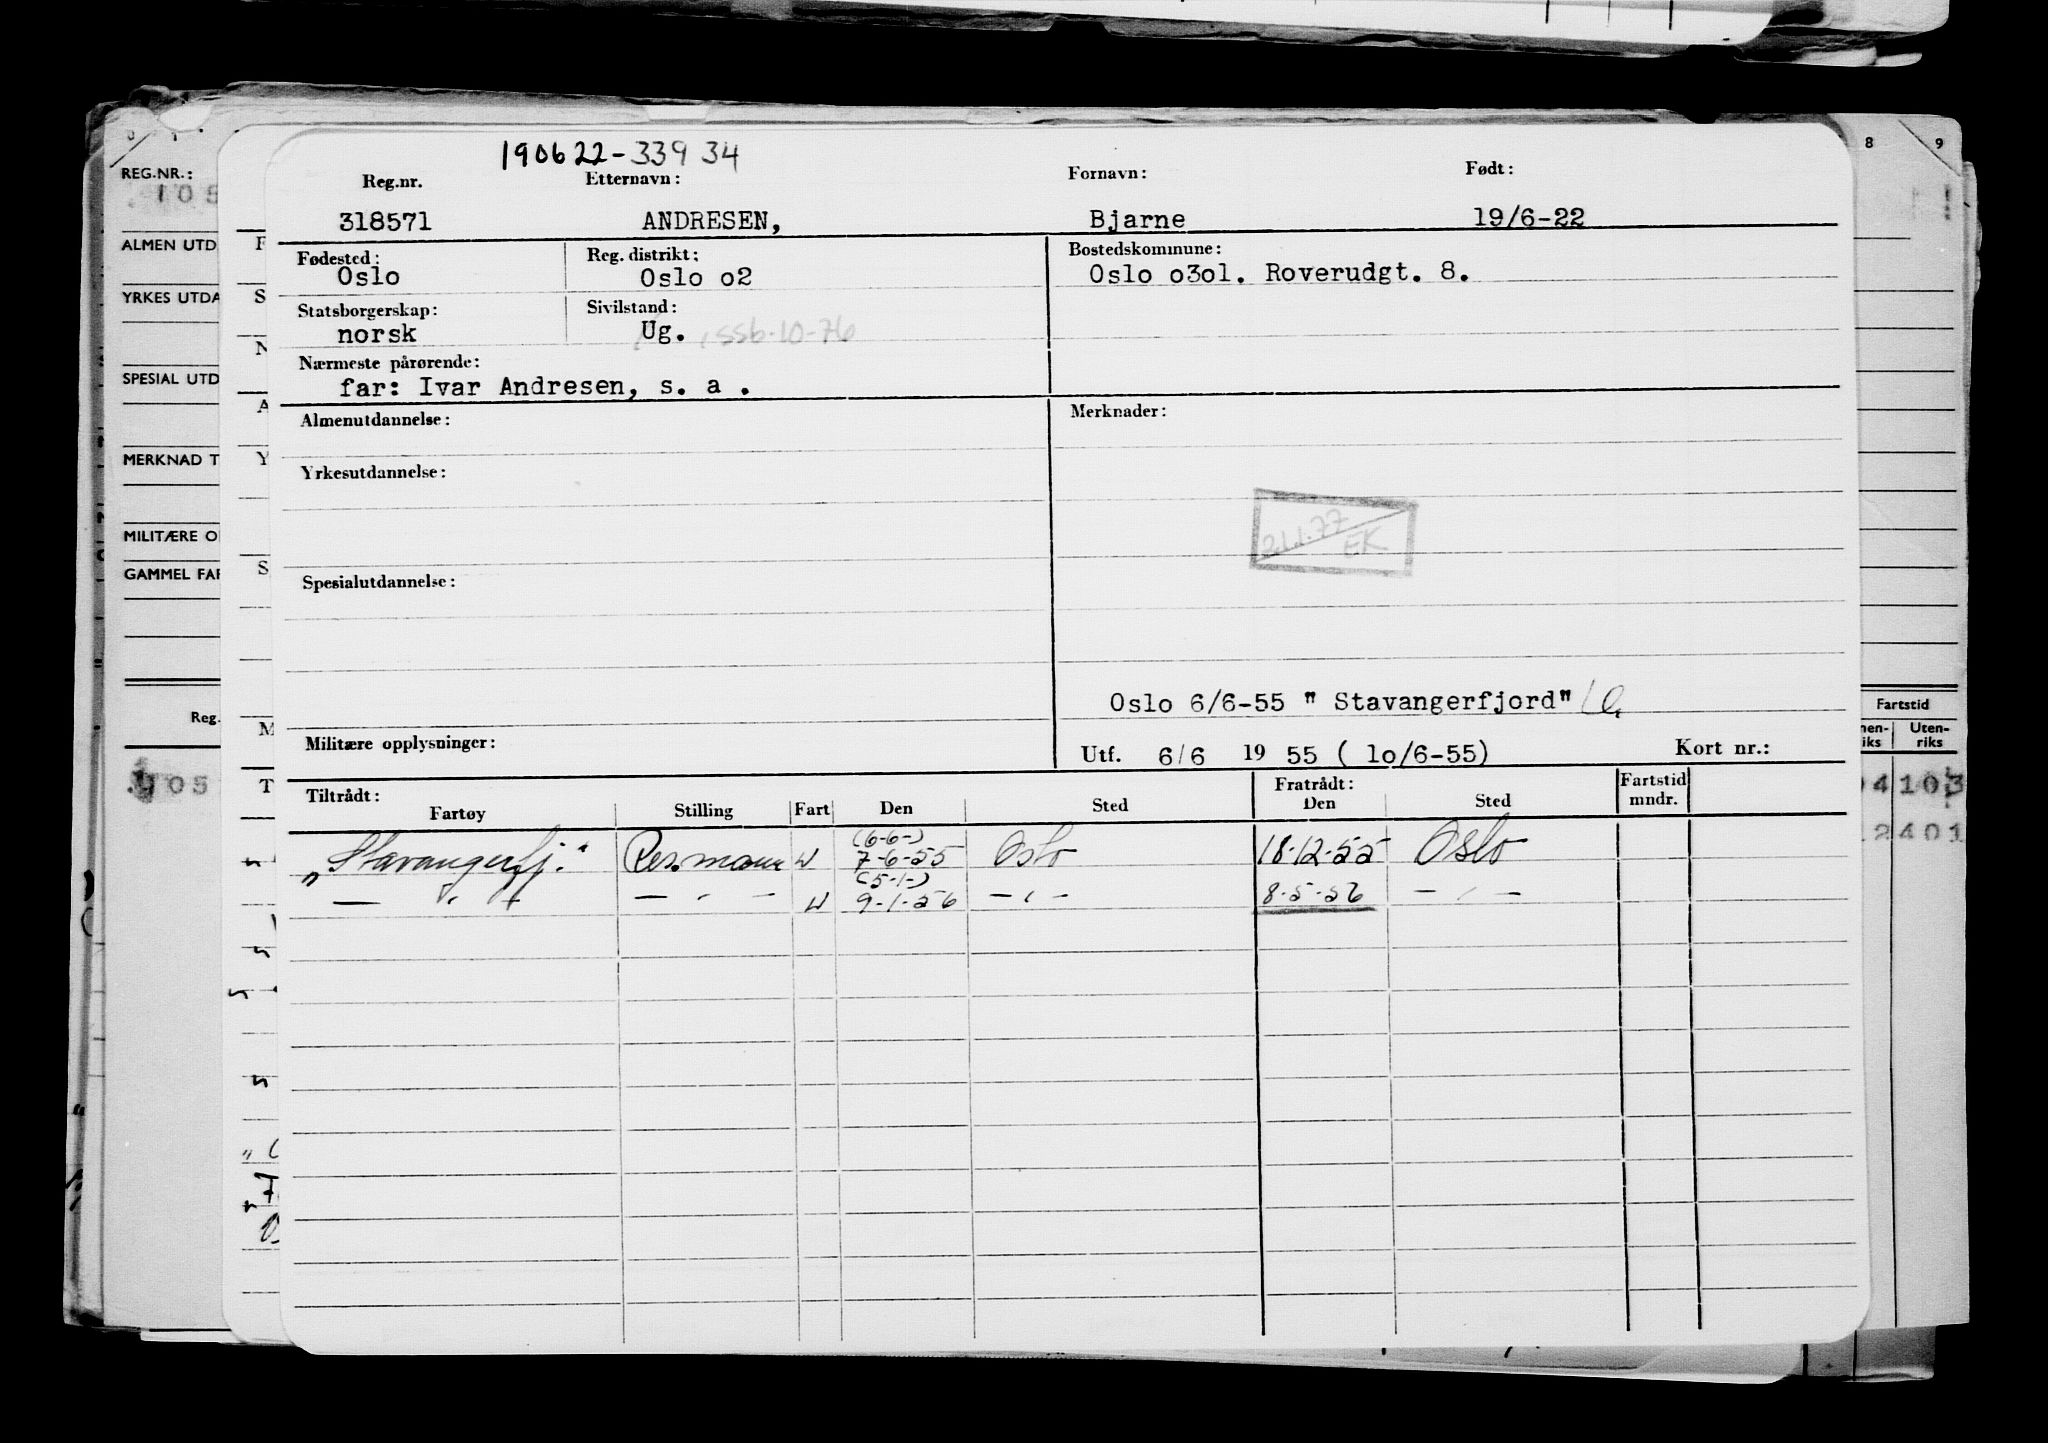 8 9
REG.NR.:
ALMEN UTD
YRKES UTDA
SPECIAL UTD
MERKNAD T
MILITÆRE O
GAMMEL FAR
Reg.
F
S
N
A
Y
S
M
T
190622-33934
Reg.nr. Etternavn: Fornavn: Født:
318571 ANDRESEN, Bjarne 19/6-22
Fødested: Reg. distrikt: Bostedskommune:
Oslo Oslo o2 Oslo o3ol. Roverudgt. 8.
Statsborgerskap: Sivilstand:
norsk Ug. ssb.10-76
Nærmeste pårørende:
far: Ivar Andresen, s. a .
Almenutdannelse: Merknader:
Yrkesutdannelse:
21.1.77 EK
Spesialutdannelse:
Oslo 6/6-55 " Stavangerfjord"
Militære opplysninger: Utf. 6/6 19 55 ( lo/6-55) Kort nr.:
Tiltrådt: Fratrådt: Fartstid
Fartøy Stilling Fart Den Sted Den Sted mndr.
(6-6-)
„Stavangerfj." W 7-6-55 Oslo 18-12-55 Oslo
(5-1-)
— " — — " — W 9-1-56 — " — 8-5-56 — " —
Fartstid
nen-riks Uten-riks
04 103
12401